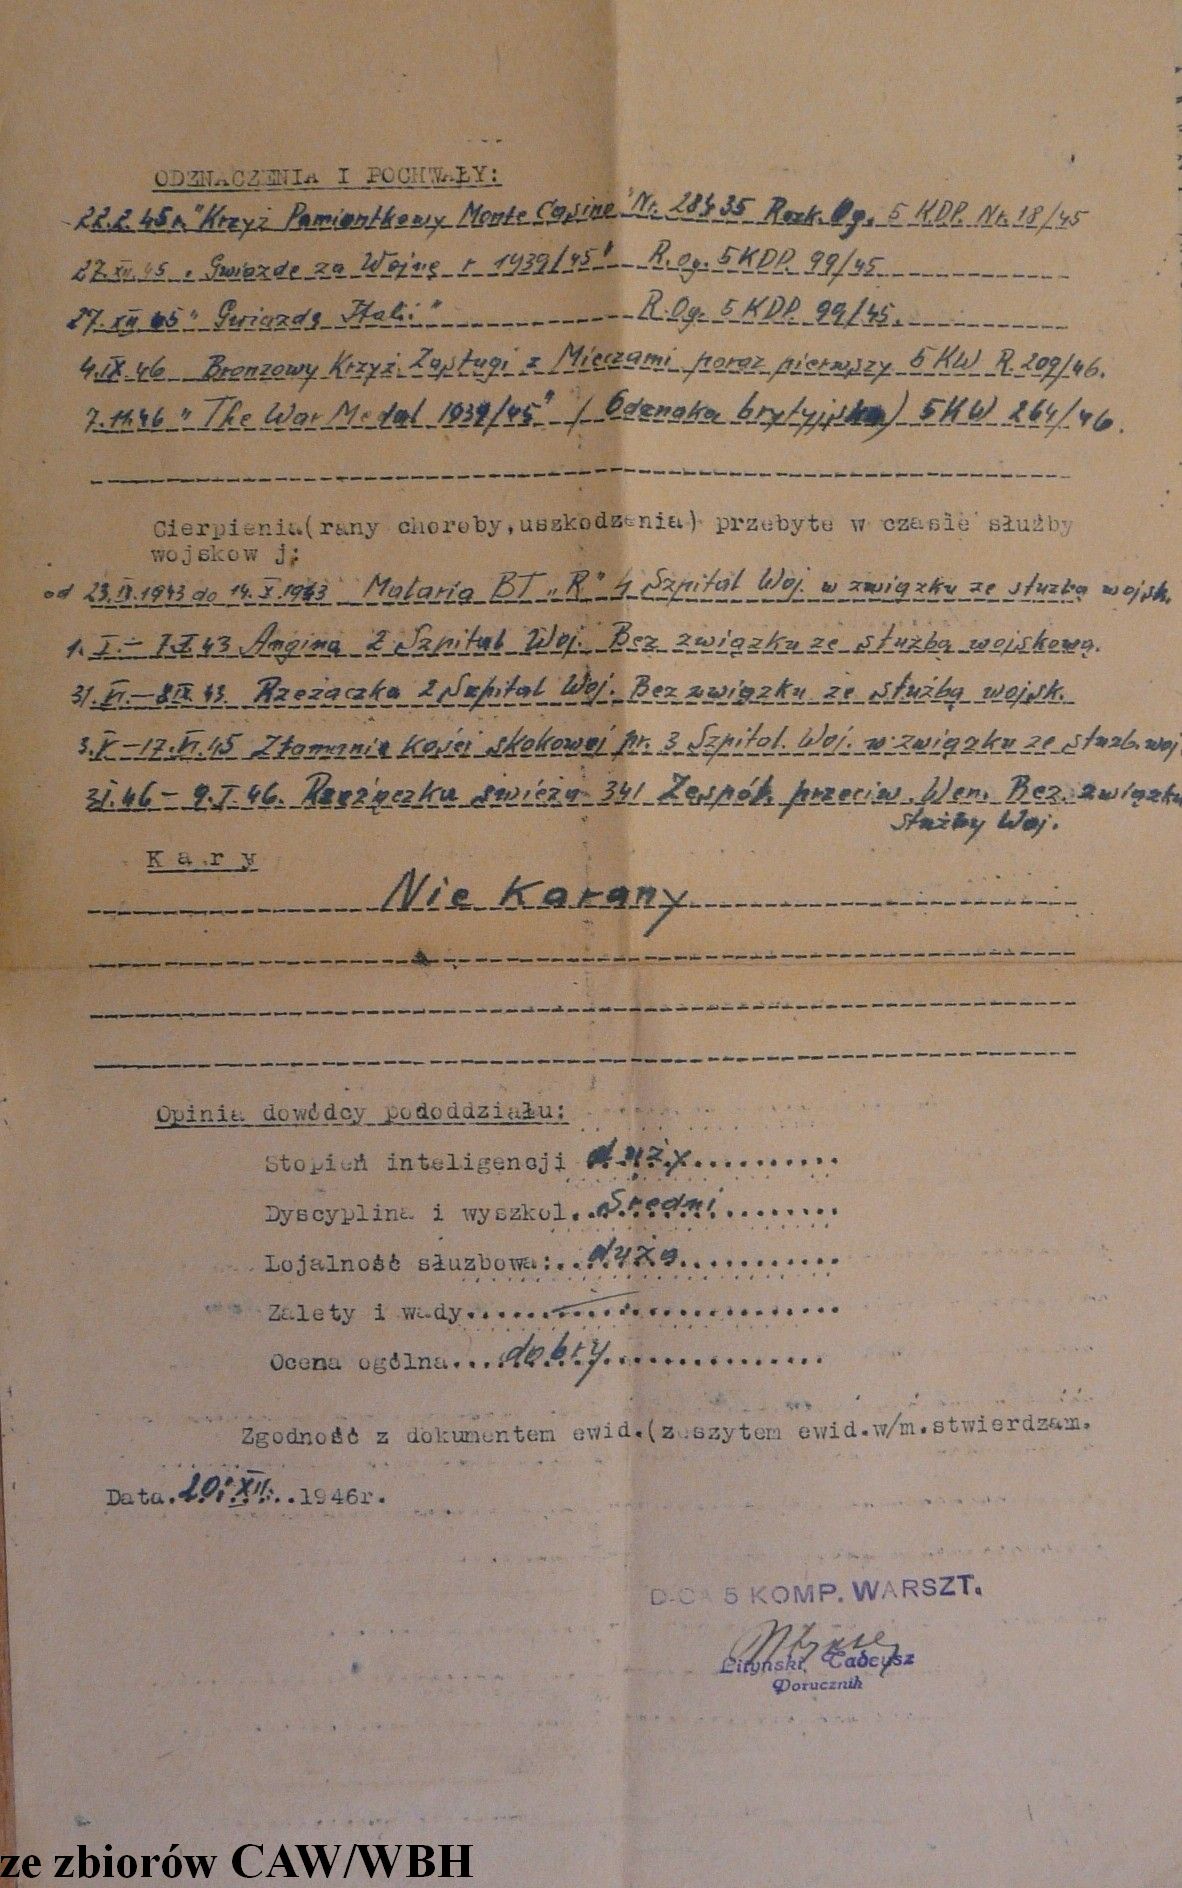 ODZNACZENIA I POCHWAŁY:
22.2.45r. "Krzyż Pamiantkowy Monte Casino" Nr. 28435 Rozk. Og. 5 KDP. Nr. 18/45
27.XII.45 "Gwiazdę za Wojnę r 1939/45" R. Og. 5 KDP. 99/45
27.XII 45 "Gwiazdę Itali" R. Og. 5 KDP. 99/45.
4.IX.46 Bronzowy Krzyż Zasługi z Mieczami poraz pierwszy 5 KW R. 209/46.
7.11.46 "The War Medal 1939/45" (Odznaka brytyjska) 5 KW 264/46.
Cierpienia(rany choroby,uszkodzenia) przebyte w czasie służby
wojskow j;
od 23.IX.1943 do 14.X.1943 Malaria BT "R" 4 Szpital Woj. w związku ze służbą wojsk.
Angina 2 Szpital Woj. Bez związku ze służbą wojskową.
Rzeżączka 2 Szpital Woj. Bez związku ze służbą wojsk.
3.V-17.VI.45 Złamanie kości skokowej pr. 3 Szpital. Woj. w związku ze służb. woj
46-9.I.46. Rzeżączka świeża 341 Zespół przeciw. Wen. Bez związku
służby Woj.
K a r y
Nie Karany
Opinia dowódcy pododdziału:
Stopień inteligencji duży
Dyscyplina i wyszkol. średni
Lojalność służbowa: duża
Zalety i wady
Ocena ogólna dobry
Zgodność z dokumentem ewid.(zeszytem ewid.w/m.stwierdzam.
Data. 20.XII. 1946r.
D-CA 5 KOMP. WARSZT.
Lityński Tadeusz
Porucznik
ze zbiorów CAW/WBH